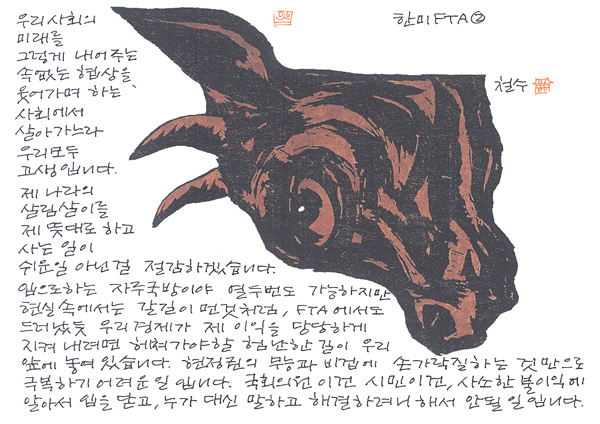 한미FTA②
철수
우리사회의
미래를
그렇게 내어주는
속없는 협상을
웃어가며 하는
사회에서
살아가느라
우리모두
고생입니다.
제 나라의
살림살이를
제 뜻대로 하고
사는 일이
쉬운일 아닌걸 절감하겠습니다.
입으로하는 자주국방이야 열두번도 가능하지만
현실속에서는 갈길이 먼것처럼, FTA에서도
드러났듯 우리경제가 제 이익을 당당하게
지켜 내려면 헤쳐가야할 험난한 길이 우리
앞에 놓여 있습니다. 현정권의 무능과 비겁에 손가락질하는 것만으로
극복하기 어려운 일입니다. 국회의원이건 시민이건, 사소한 불이익에
알아서 입을 닫고, 누가 대신 말하고 해결하려니 해서 안될 일입니다.